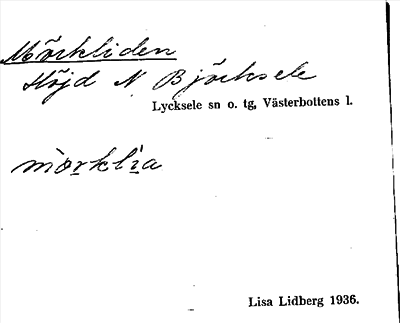 Mörkliden
Höjd N Björksele
Lycksele sn o. tg, Västerbottens l.
mö̀rklìa
Lisa Lidberg 1936.